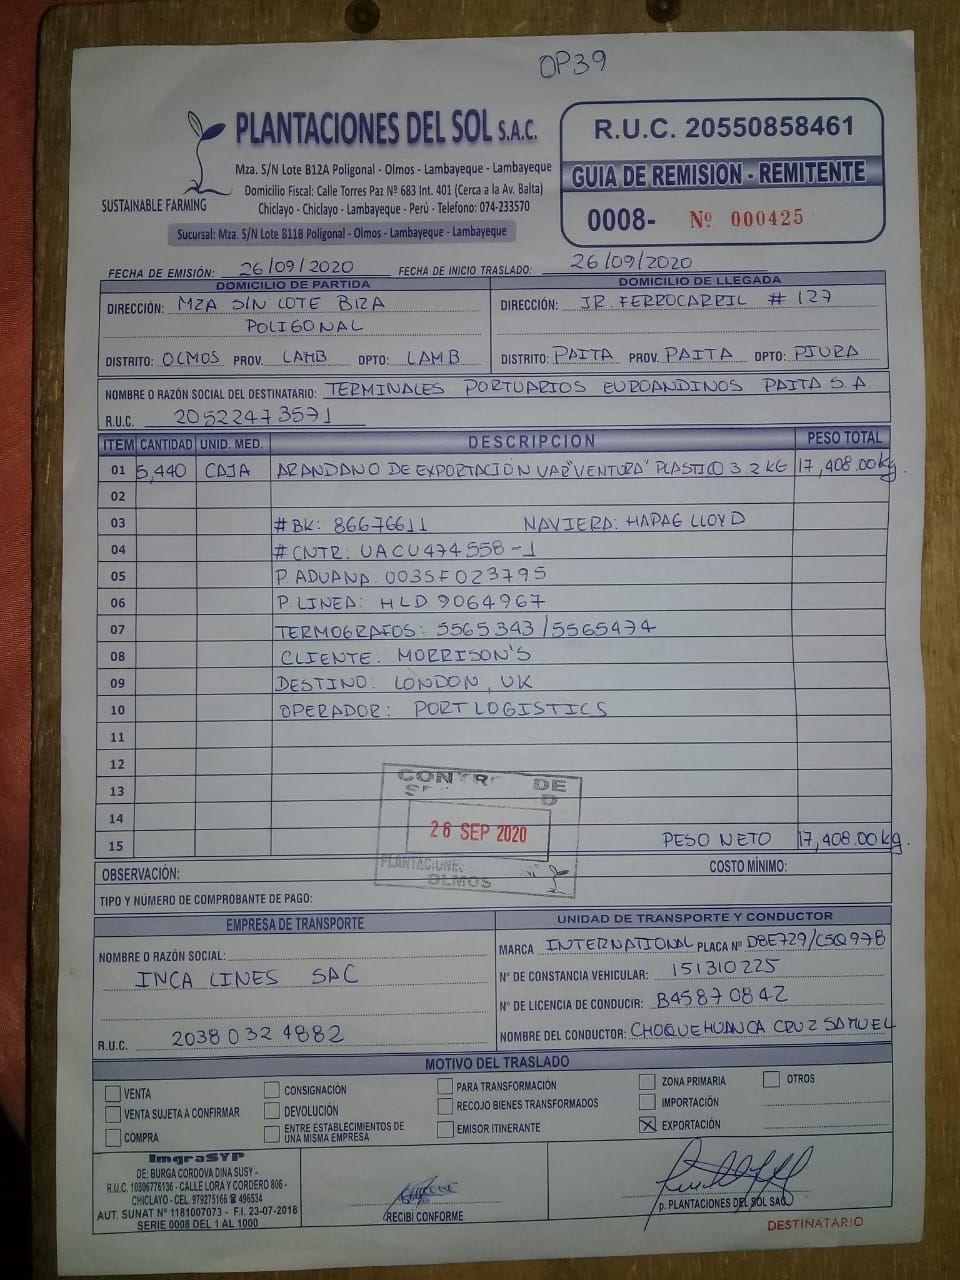 OP39
PLANTACIONES DEL SOL S.A.C.
Mza. S/N Lote B12A Poligonal - Olmos - Lambayeque - Lambayeque
Domicilio Fiscal: Calle Torres Paz Nº 683 Int. 401 (Cerca a la Av. Balta)
Chiclayo - Chiclayo - Lambayeque - Perú - Telefono: 074-233570
SUSTAINABLE FARMING
Sucursal: Mza. S/N Lote B11B Poligonal - Olmos - Lambayeque - Lambayeque
R.U.C. 20550858461
GUIA DE REMISION - REMITENTE
0008- Nº 000425
FECHA DE EMISIÓN: 26/09/2020 FECHA DE INICIO TRASLADO: 26/09/2020
DOMICILIO DE PARTIDA
DIRECCIÓN: MZA S/N LOTE B12A
POLIGONAL
DISTRITO: OLMOS PROV. LAMB DPTO: LAMB
DOMICILIO DE LLEGADA
DIRECCIÓN: JR. FERROCARRIL # 127
DISTRITO: PAITA PROV. PAITA DPTO: PIURA
NOMBRE O RAZÓN SOCIAL DEL DESTINATARIO: TERMINALES PORTUARIOS EUROANDINOS PAITA S.A.
R.U.C. 20522473571
ITEM CANTIDAD UNID. MED. DESCRIPCION PESO TOTAL
01 5,440 CAJA ARANDANO DE EXPORTACIÓN VAR "VENTURA" PLASTICO 3.2 KG 17,408.00 kg.
02
03 # BK: 86676611 NAVIERA: HAPAG LLOYD
04 # CNTR: UACU474558-1
05 P. ADUANA: 003SF023795
06 P. LINEA: HLD 9064967
07 TERMOGRAFOS: 5565343/5565474
08 CLIENTE: MORRISON'S
09 DESTINO: LONDON, UK
10 OPERADOR: PORT LOGISTICS
11
12
13
14
15 PESO NETO 17,408.00 kg.
DE
26 SEP 2020
OLMOS
OBSERVACIÓN: COSTO MÍNIMO:
TIPO Y NÚMERO DE COMPROBANTE DE PAGO:
EMPRESA DE TRANSPORTE
NOMBRE O RAZÓN SOCIAL:
INCA LINES SAC
R.U.C. 20380324882
UNIDAD DE TRANSPORTE Y CONDUCTOR
MARCA INTERNATIONAL PLACA Nº D8E729/C5Q978
Nº DE CONSTANCIA VEHICULAR: 151310225
Nº DE LICENCIA DE CONDUCIR: B45870842
NOMBRE DEL CONDUCTOR: CHOQUEHUANCA CRUZ SAMUEL
MOTIVO DEL TRASLADO
VENTA
VENTA SUJETA A CONFIRMAR
COMPRA
CONSIGNACIÓN
DEVOLUCIÓN
ENTRE ESTABLECIMIENTOS DE
UNA MISMA EMPRESA
PARA TRANSFORMACIÓN
RECOJO BIENES TRANSFORMADOS
EMISOR ITINERANTE
ZONA PRIMARIA
IMPORTACIÓN
X EXPORTACIÓN
OTROS
ImgraSYP
DE: BURGA CORDOVA DINA SUSY -
R.U.C. 10806776136 - CALLE LORA Y CORDERO 806 -
CHICLAYO - CEL. 979275166 ☎ 496534
AUT. SUNAT Nº 1181007073 - F.I. 23-07-2018
SERIE 0008 DEL 1 AL 1000
RECIBI CONFORME
p. PLANTACIONES DEL SOL SAC.
DESTINATARIO